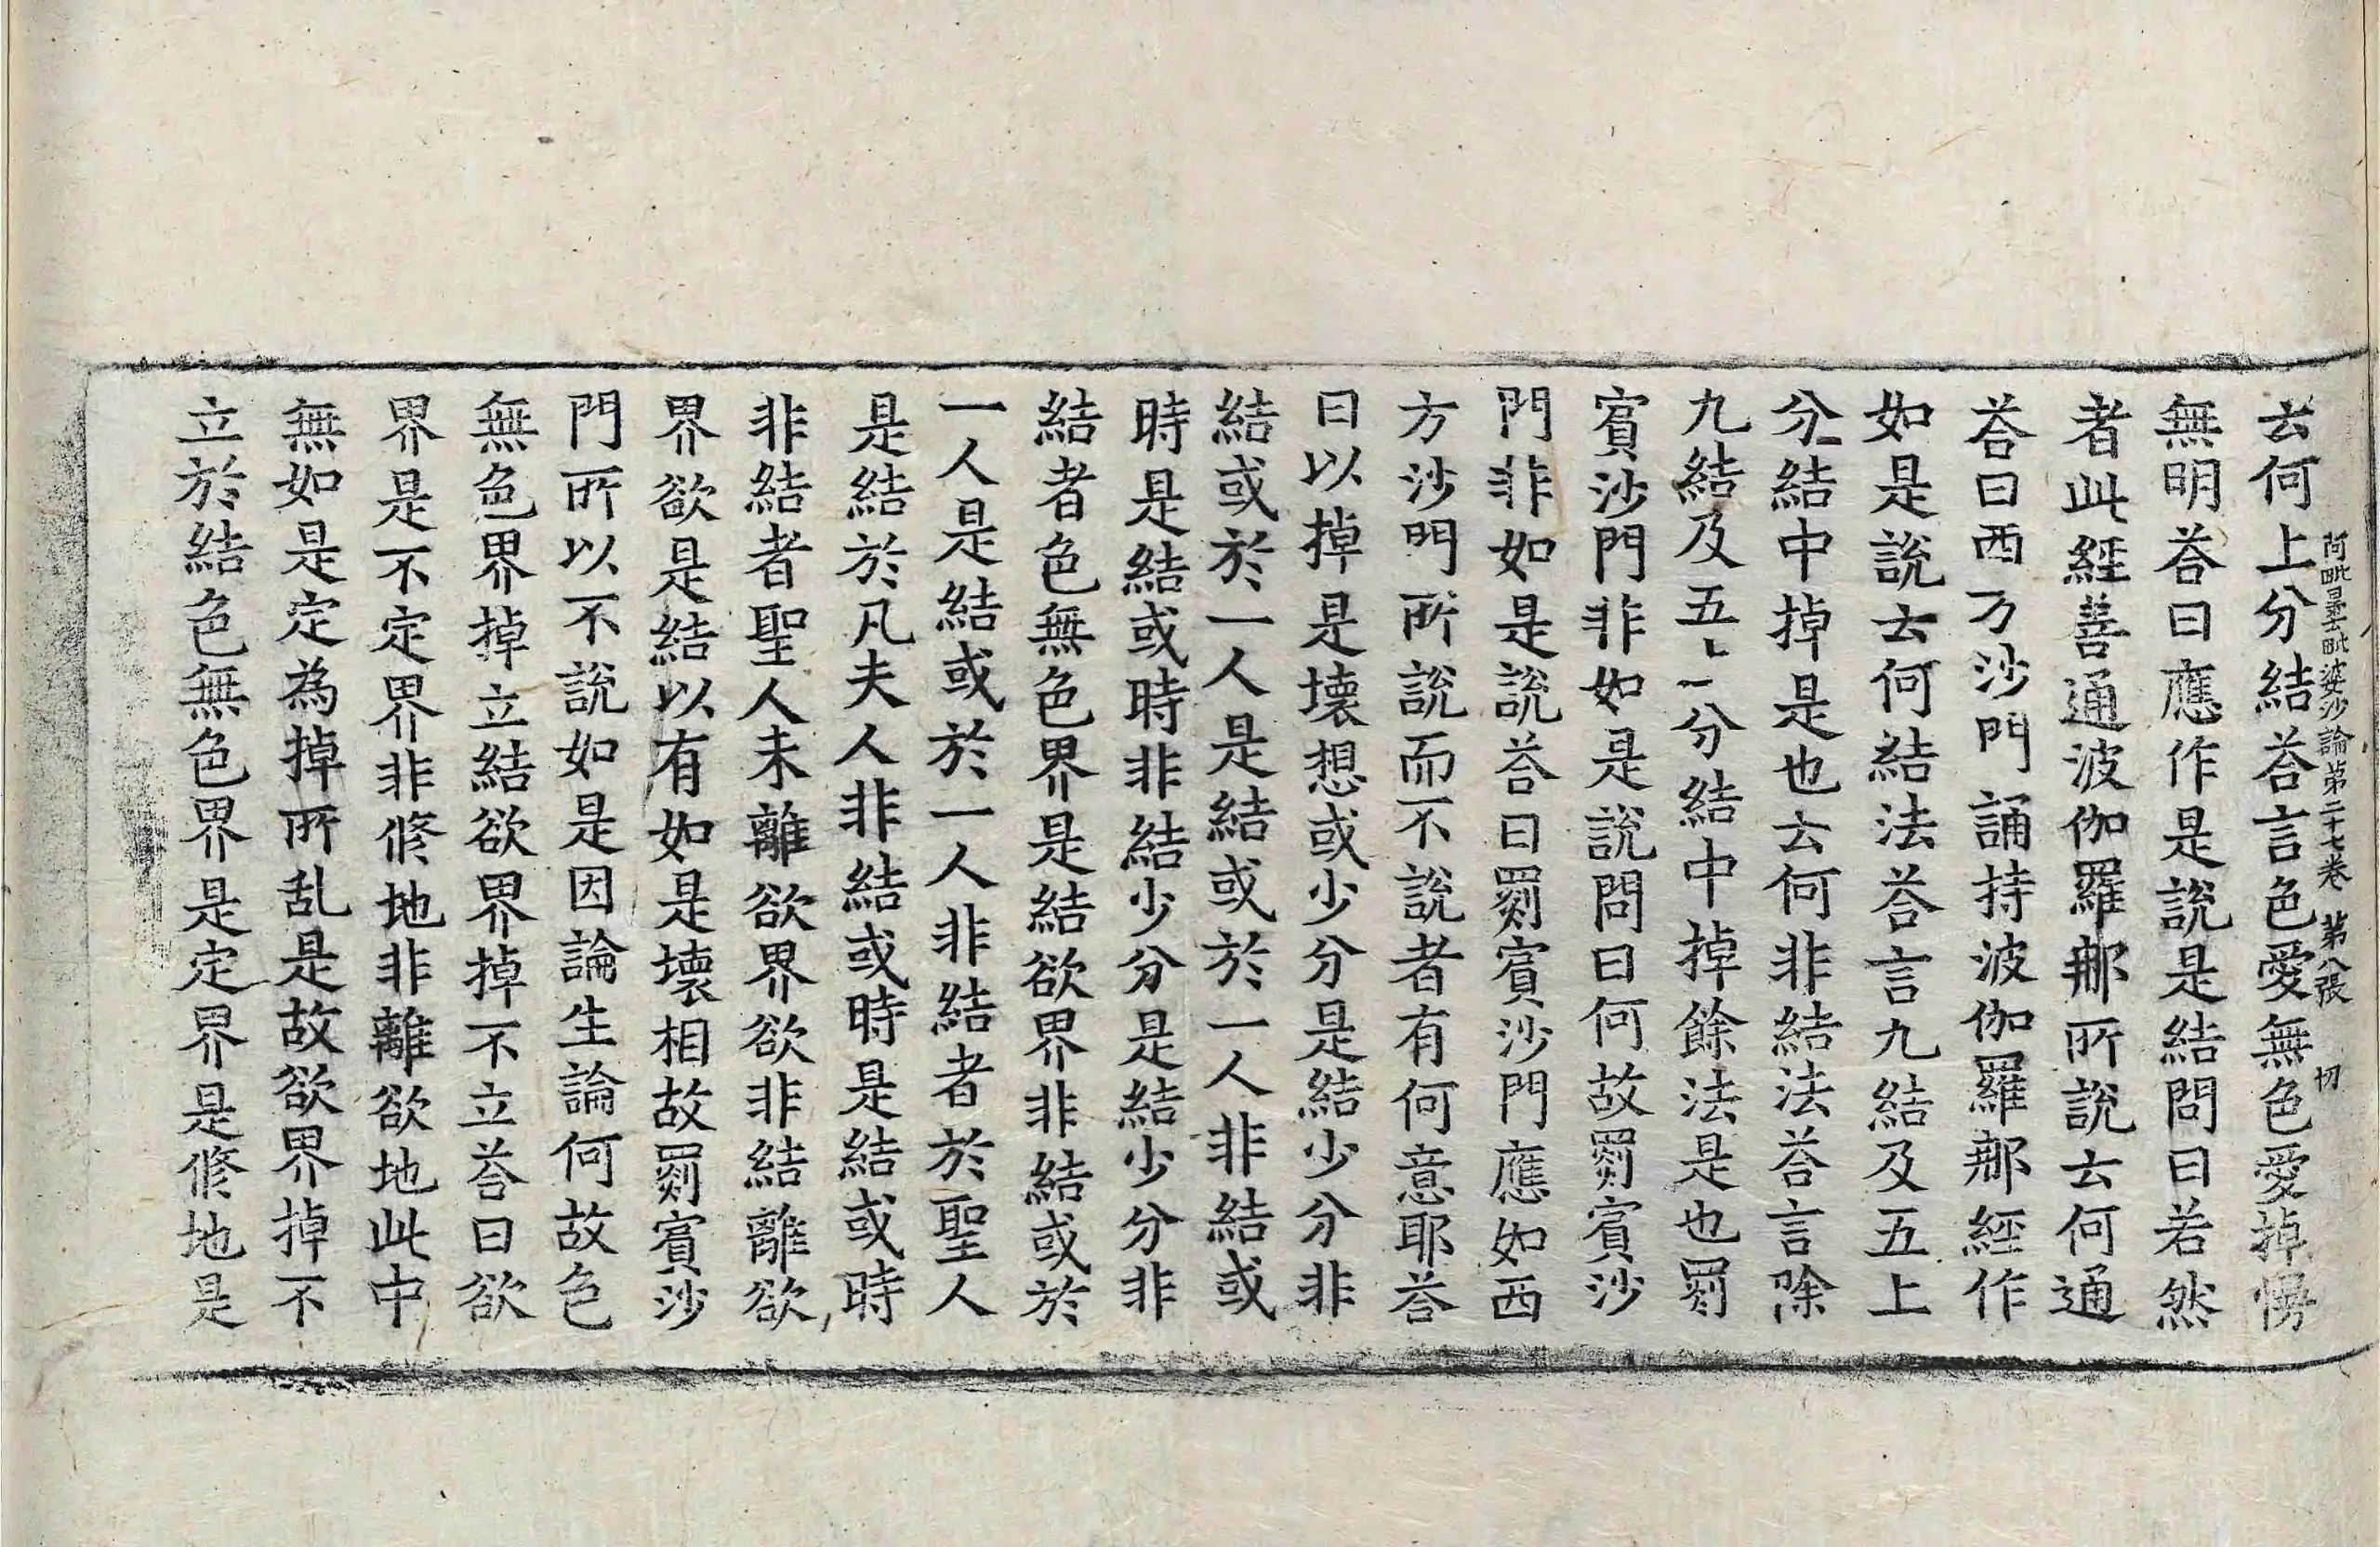 阿毗曇毗婆沙論第二十七卷 第八張 切
云何上分結荅言色愛無色愛掉慢
無明荅曰應作是說是結問曰若然
者此經善通波伽羅那所說云何通
荅曰西方沙門誦持波伽羅那經作
如是說云何結法荅言九結及五上
分結中掉是也云何非結法荅言除
九結及五上分結中掉餘法是也罽
賓沙門非如是說問曰何故罽賓沙
門非如是說荅曰罽賓沙門應如西
方沙門所說而不說者有何意耶荅
曰以掉是壞想或少分是結少分非
結或於一人是結或於一人非結或
時是結或時非結少分是結少分非
結者色無色界是結欲界非結或於
一人是結或於一人非結者於聖人
是結於凡夫人非結或時是結或時
非結者聖人未離欲界欲非結離欲
界欲是結以有如是壞相故罽賓沙
門所以不說如是因論生論何故色
無色界掉立結欲界掉不立荅曰欲
界是不定界非修地非離欲地此中
無如是定為掉所乱是故欲界掉不
立於結色無色界是定界是修地是